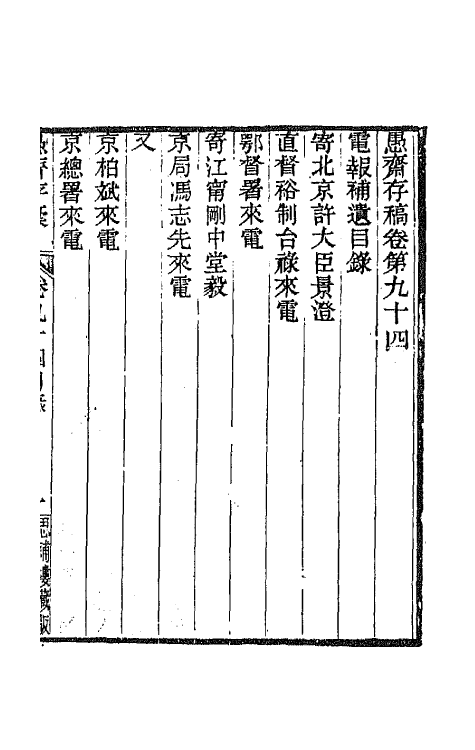 愚齋存稿卷第九十四
電報補遺目錄
寄北京許大臣景澄
直督裕制台祿來電
鄂督署來電
寄江甯剛中堂毅
京局馮志先來電
又
京柏斌來電
京總署來電
愚齋存稾 卷九十四目錄 一 思補樓藏版